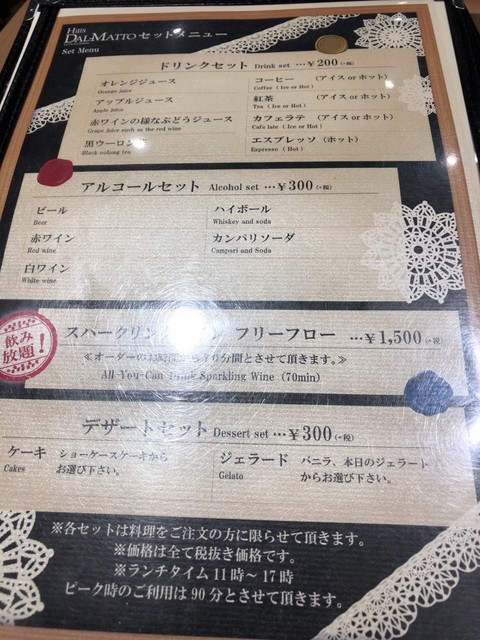 HILLS DAL-MATTO セットメニュー
Set Menu
ドリンクセット Drink set …￥200(+税)
オレンジジュース
Orange juice
アップルジュース
Apple juice
赤ワインの様なぶどうジュース
Grape juice such as the red wine
黒ウーロン
Black oolong tea
コーヒー (アイス or ホット)
Coffee ( Ice or Hot )
紅茶 (アイス or ホット)
Tea ( Ice or Hot )
カフェラテ (アイス or ホット)
Cafe latte ( Ice or Hot )
エスプレッソ (ホット)
Espresso ( Hot )
アルコールセット Alcohol set …￥300(+税)
ビール
Beer
赤ワイン
Red wine
白ワイン
White wine
ハイボール
Whiskey and soda
カンパリソーダ
Campari and Soda
飲み
放題!
スパークリン フリーフロー …￥1,500(+税)
≪オーダーのお時間から70分間とさせて頂きます。≫
All-You-Can Drink Sparkling Wine (70min)
デザートセット Dessert set …￥300(+税)
ケーキ ショーケースケーキから
Cakes お選び下さい。
ジェラード バニラ、本日のジェラート
Gelato からお選び下さい。
※各セットは料理をご注文の方に限らせて頂きます。
※価格は全て税抜き価格です。
※ランチタイム 11時～17時
ピーク時のご利用は90分とさせて頂きます。